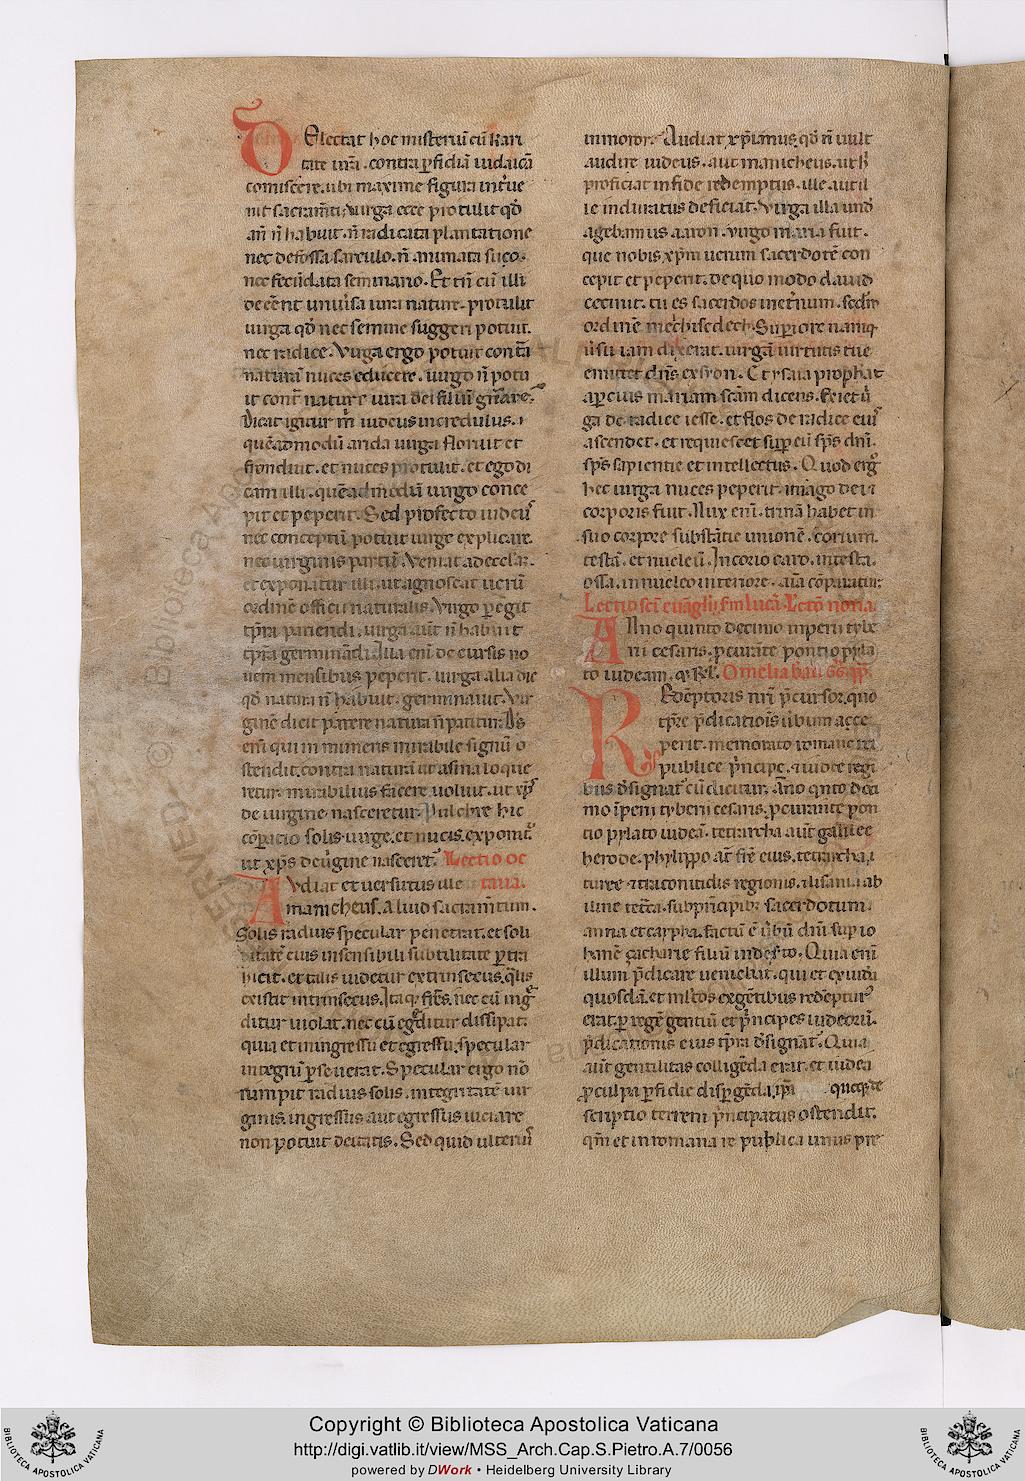 Delectat hoc misteriũ cũ kari
tate vr̃a . contra ꝑfidiã iudaicã
comiscere . ubi maxime figura int̃ue
nit sacram̃ti . Virga ecce protulit qđ
añ ñ habuit . ñ radicata plantatione
nec defossa sarculo . ñ animata suco .
nec fecũdata seminario . Et tñ cũ illi
deẽent uniũsa iura nature . protulit
uirga qđ nec semine suggeri potuit .
nec radice . Virga ergo potuit cont̃a
naturã nuces educere . uirgo ñ potu
it cont̃ nature iura dei filiũ gñare .
Dicat igitur m̃ iudeus incredulus .
quẽadmodũ arida uirga floruit et
fronduit . et nuces protulit . et ego di
cam illi . quẽadmodũ uirgo conce
pit et peperit . Sed profecto iudeꝰ
nec conceptũ potuit uirge explicare .
nec uirginis partũ . Veniat adecclã .
et exponitur illi . ut agnoscat uerũ
ordinẽ officii naturalis . Virgo ꝑegit
tp̃ra pariendi . uirga aũt ñ habuit
tp̃ra germinãdi . Illa eni᷑ decursis no
uem mensibus peperit . uirga alia die
qđ natura ñ habuit . germinauit . Vir
ginẽ dicit parere natura ñ patitur . Dš
eni᷑ qui in numens mirabile signũ o
stendit . contra naturã ut asina loque
retur . mirabilius facere uoluit . ut xp̃s
de uirgine nasceretur . Pulchre hic
cõparatio solis . uirge . et nucis . exponit᷑
ut xp̃s de uirgine nasceret᷑ . Lectio oc
Avdiat et uersutus ille taua .
manicheus . aliud sacram̃tum .
Solis radius specular penetrat . et soli
ditatẽ eius insensibili subtilitate ꝑtra
hicit . et talis uidetur extrinsecus . q̃lis
existit intrinsecus . Itaq; frẽs . nec cũ ingᷓ
ditur uiolat . nec cũ egᷓditur dissipat .
quia et in ingressu et egressu . specular
integrũ ꝑseuerat . Specular ergo nõ
rumpit radius solis . integritatẽ uir
ginis . ingressus aut egressus uiciare
non potuit deitatis . Sed quid ulteriꝰ
inmoror . Audiat xp̃ianus . qđ ñ uult
audire iudeus . aut manicheus . ut h̃
proficiat in fide redemptus . ille aut il
le induratus deficiat . Virga illa unđ
agebamus aaron . uirgo maria fuit .
que nobis xp̃m uerum sacerdotẽ con
cepit et peperit . de quo modo dauid
cecinit . tu es sacerdos inet̃num . sedm̃
ordinẽ melchisedech . Supiore namq;
ũsu iam dixerat . uirgã uirtutis tue
emittet dñs ex syon . Et ysaia prophat
aꝑ eius mariam scãm dicens . Exiet ũ
ga de radice iesse . et flos de radice eiꝰ
ascendet . et requiescet sup eũ sps dñi .
sps sapientie et intellectus . Quod erg̊
hec uirga nuces peperit . imago dei
corporis fuit . Nux eni᷑ . trinã habet in
suo corpore substãtie unionẽ . corium .
testã . et nucleũ . In corio caro . in testa .
ossa . in nucleo interiore . aĩa cõparatur .
Lectio scĩ euãglii . s̃m lucã . Lectõ nona .
Anno quinto decimo imperii tybe
rii cesaris . pcurãte pontio pyla
to iudeam . et Rl . Omelia bãti G̃g p̃p̃ .
Redẽptoris nr̃i p̃cursor . quo
tp̃re p̃dicatiõis ũbum acce
perit . memorato romane rei
publice p̃ncipe . et iudee regi
bus dsignatᷣ cũ dicitur . Añno qnto deci
mo ĩperii tyberii cesaris . pcurante pon
tio pylato iudeã . tetrarcha aũt galilee
herode . phylippo aũt frẽ eius . tetrarcha i
turee et traconitidis regionis . et lisania ab
iline tetr̃a . sub p̃ncipibꝫ sacerdotum
anna et caypha . factũ ẽ ũbũ dñi sup io
hanẽ zacharie filiũ in desẽto . Quia eni᷑
illum p̃dicare ueniebat . qui et ex iudea
quosdã . et multos ex gẽtibus redẽpturꝰ
erat . ꝑ regẽ gentiũ et p̃ncipes iudeorũ .
p̃dicationis eius tp̃ra dsignãt᷑ . Quia
aũt gentilitas colligẽda erat . et iudea
ꝓ culpa ꝑfidie dispgẽda . ip̃a quoq; de
scriptio terreni p̃ncipatus ostendit .
qm̃ et in romana re publica unus pre
Copyright © Biblioteca Apostolica Vaticana
http://digi.vatlib.it/view/MSS_Arch.Cap.S.Pietro.A.7/0056
powered by DWork • Heidelberg University Library
BIBLIOTECA APOSTOLICA VATICANA
BIBLIOTECA APOSTOLICA VATICANA